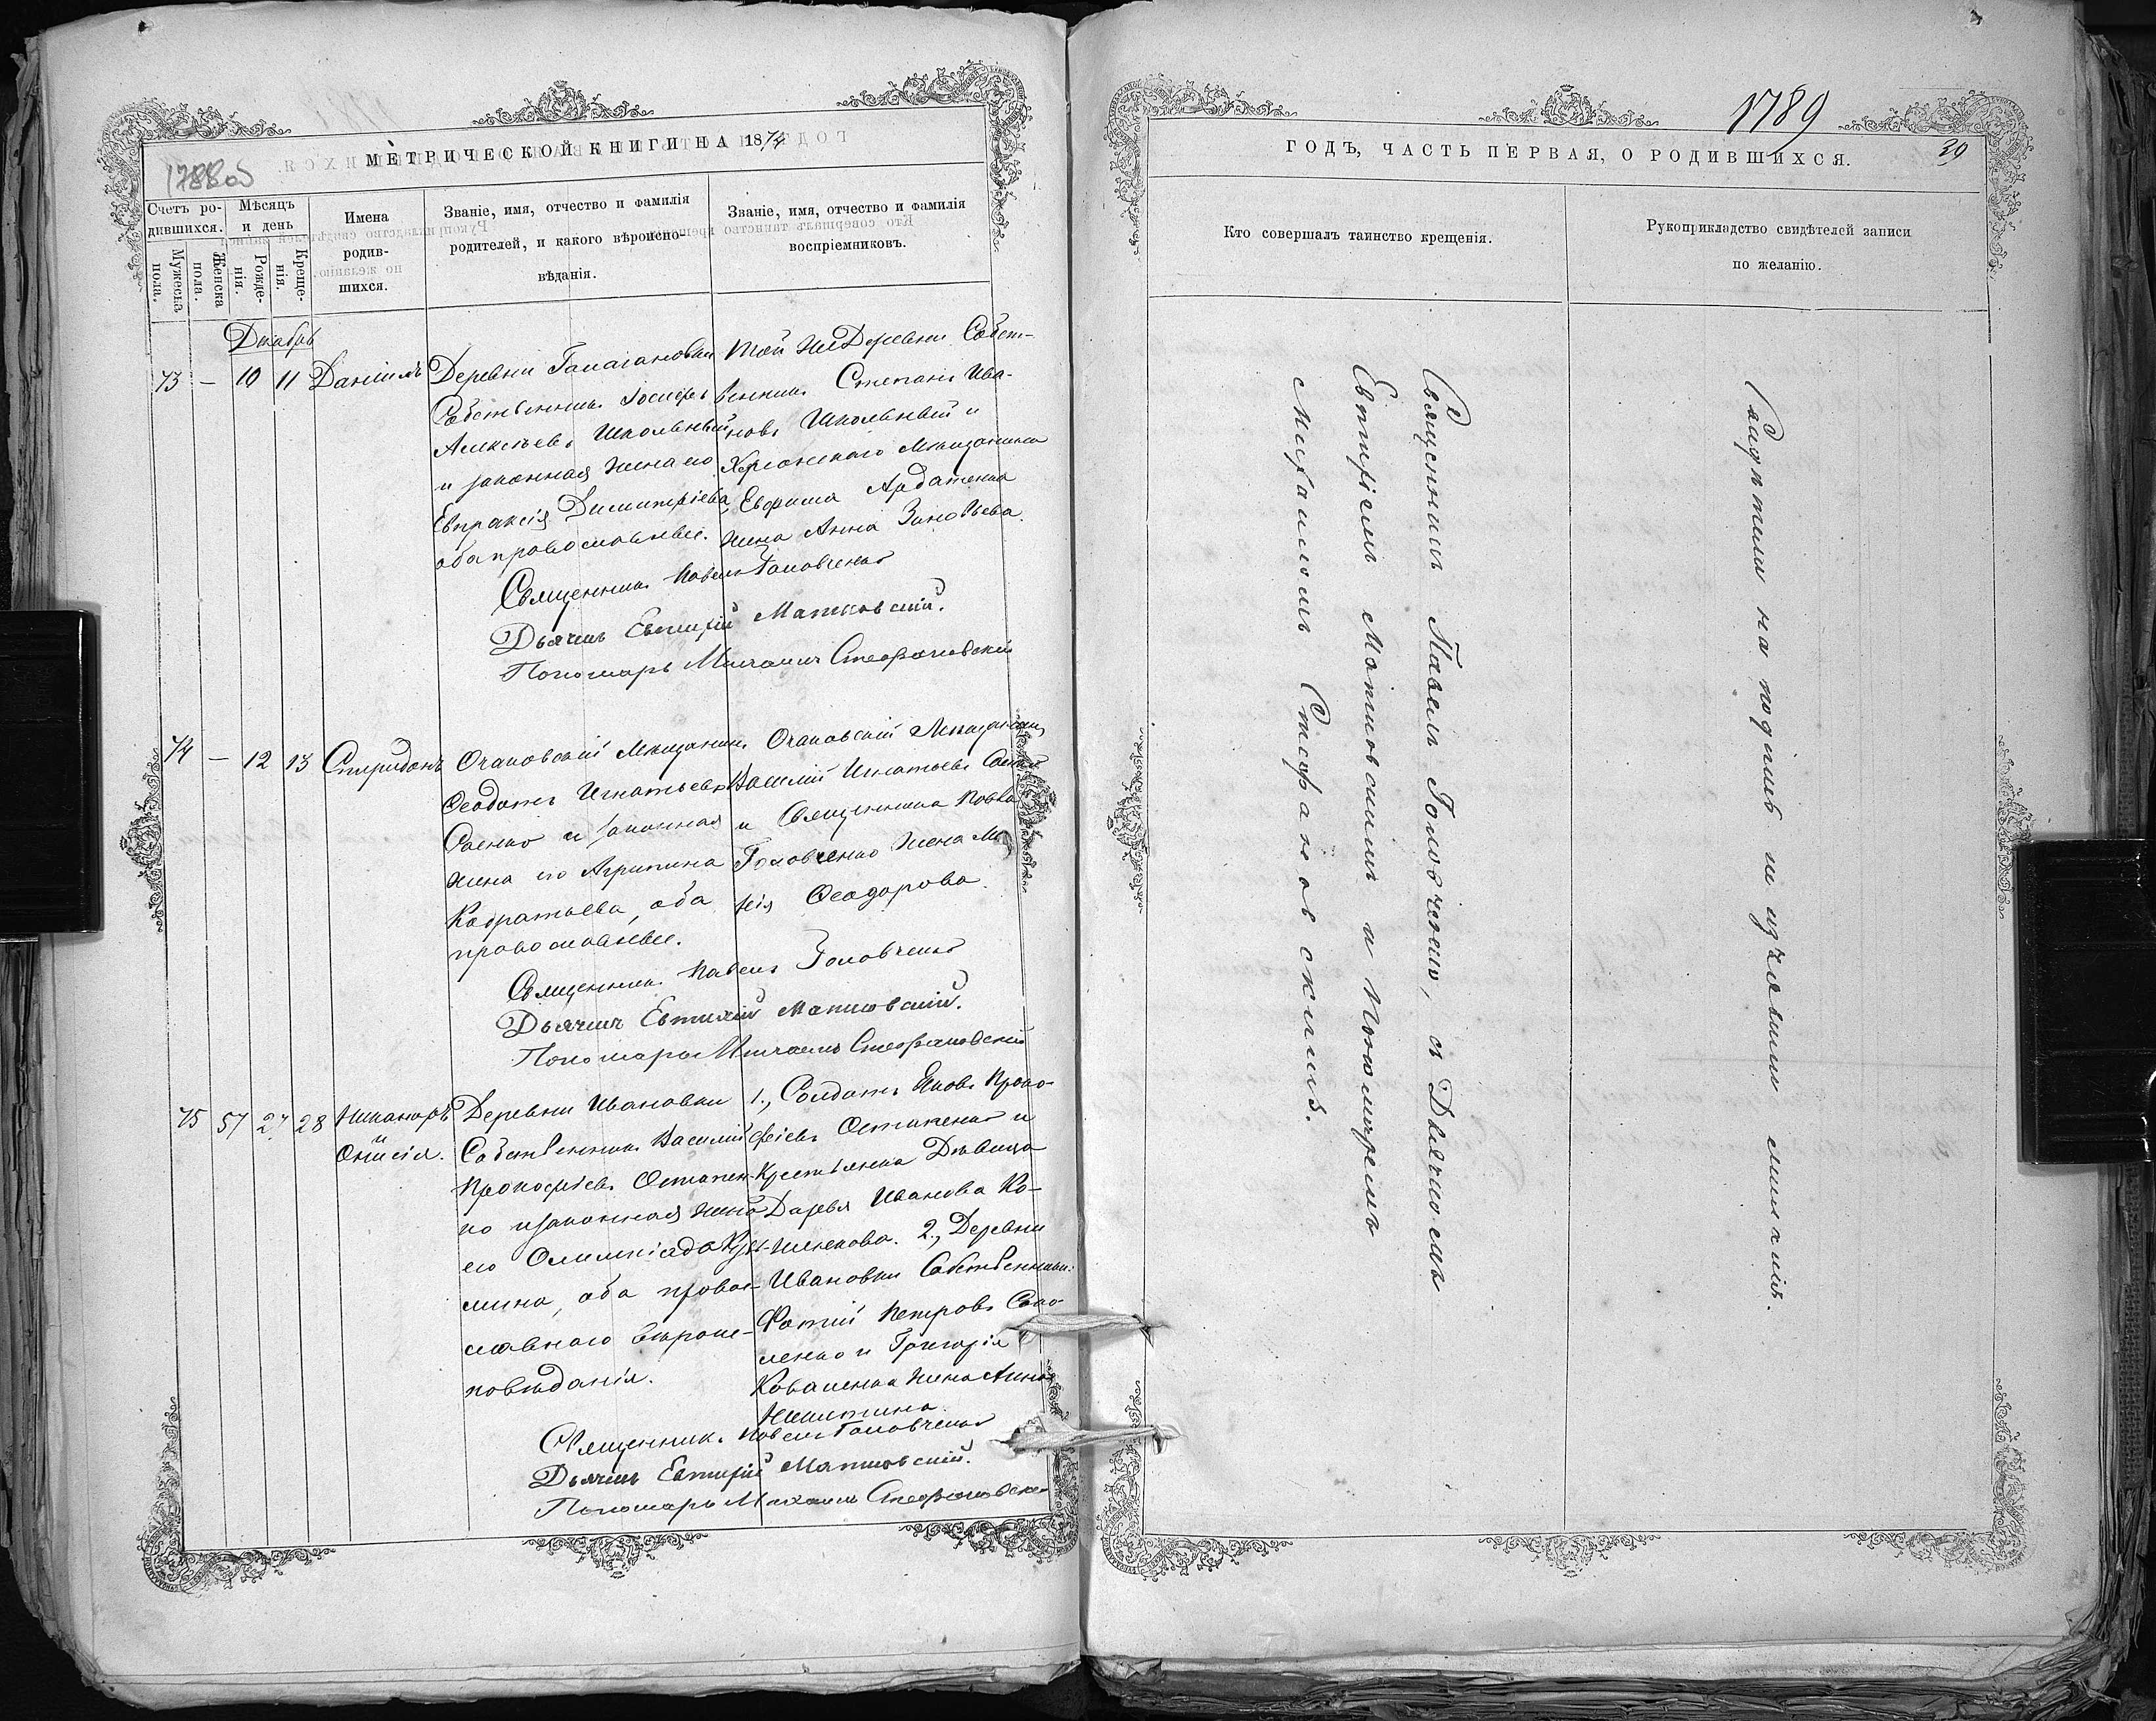 МЕТРИЧЕСКОЙ КНИГИ НА 1874
1788об
Счетъ ро-
дившихся.
Мужеска
пола.
Женска
пола.
Мѣсяцъ
и день
Рожде-
нія.
Креще-
нія.
Имена
родив-
шихся.
Званіе, имя, отчество и фамилія
родителей, и какого вѣроиспо-
вѣданія.
Званіе, имя, отчество и фамилія
воспріемниковъ.
Декабрь
73 — 10 11 Даніилъ
Деревни Галагановки
Собственникъ Іосифъ
Алексѣевъ Школьный
и законная жена его
Евпраксія Димитріева,
оба православные.
Той же Деревни Собст-
венникъ Степанъ Ива-
новъ Школьный и
Херсонскаго Мѣщанина
Ефима
жена Анна Зиновьева.
Священникъ Павелъ Головченко
Дьячекъ Евтихій Матковскій.
Пономарь Михаилъ Стефановскій
74 — 12 13 Спиридонъ
Очаковскій Мѣщанинъ
Ѳеодотъ Игнатьевъ
и законная
жена его Агрипина
оба
православные.
Очаковскій Мѣщанинъ
Василій Игнатьевъ
и Священника Павла
Головченко жена Ма-
рія Ѳеодорова.
Священникъ Павелъ Головченко
Дьячекъ Евтихій Матковскій.
Пономарь Михаилъ Стефановскій
75 57 27 28 Никаноръ
и
Деревни Ивановки
Собственникъ Василій
Прокофіевъ Остапен-
ко и законная жена
его Олимпіада
оба право-
славнаго вѣроис-
повѣданія.
1., Солдатъ Яковъ Проко-
фіевъ Остапенко и
Крестьянка Дѣвица
Дарья Иванова Ко-
2., Деревни
Ивановки Собственникъ
Фотій Петровъ
и Григорія
Коваленка жена Анна
Никитина.
Священникъ Павелъ Головченко
Дьячекъ Евтихій Матковскій.
Пономарь Михаилъ Стефановскій
1789
39
ГОДЪ, ЧАСТЬ ПЕРВАЯ, О РОДИВШИХСЯ.
Кто совершалъ таинство крещенія.
Рукоприкладство свидѣтелей записи
по желанію.
Священникъ Павелъ Головченко, съ Дьячкомъ
Евтихіемъ Матковскимъ и Пономаремъ
Михаиломъ Стефановскимъ.
Свидѣтели на подпись не изъявили